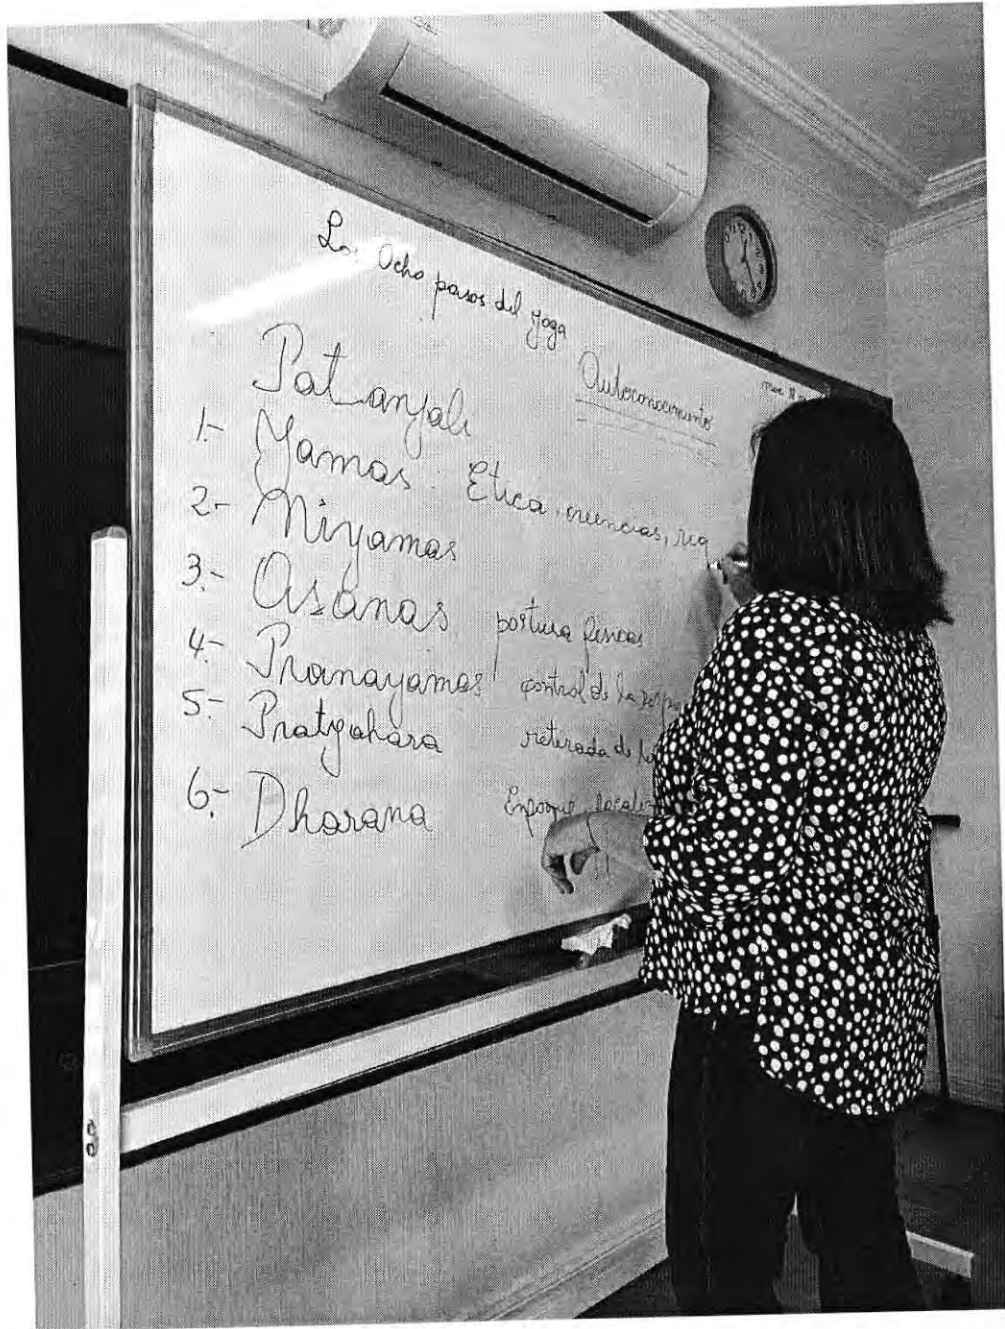 Los Ocho pasos del yoga
Autoconocimiento
Patanjali
1.- Yamas. Etica, creencias, reg
2.- Niyamas
3.- Asanas postura físicas
4.- Pranayamas control de la
5.- Pratyahara retirada de
6.- Dharana Enfoque